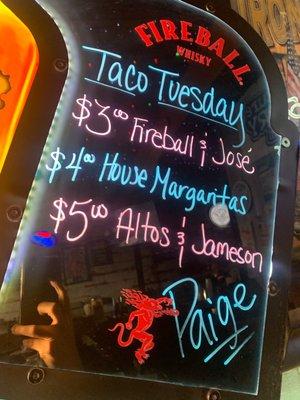 FIREBALL
WHISKY
Taco Tuesday
$3.00 Fireball & José
$4.00 House Margaritas
$5.00 Altos & Jameson
Paige